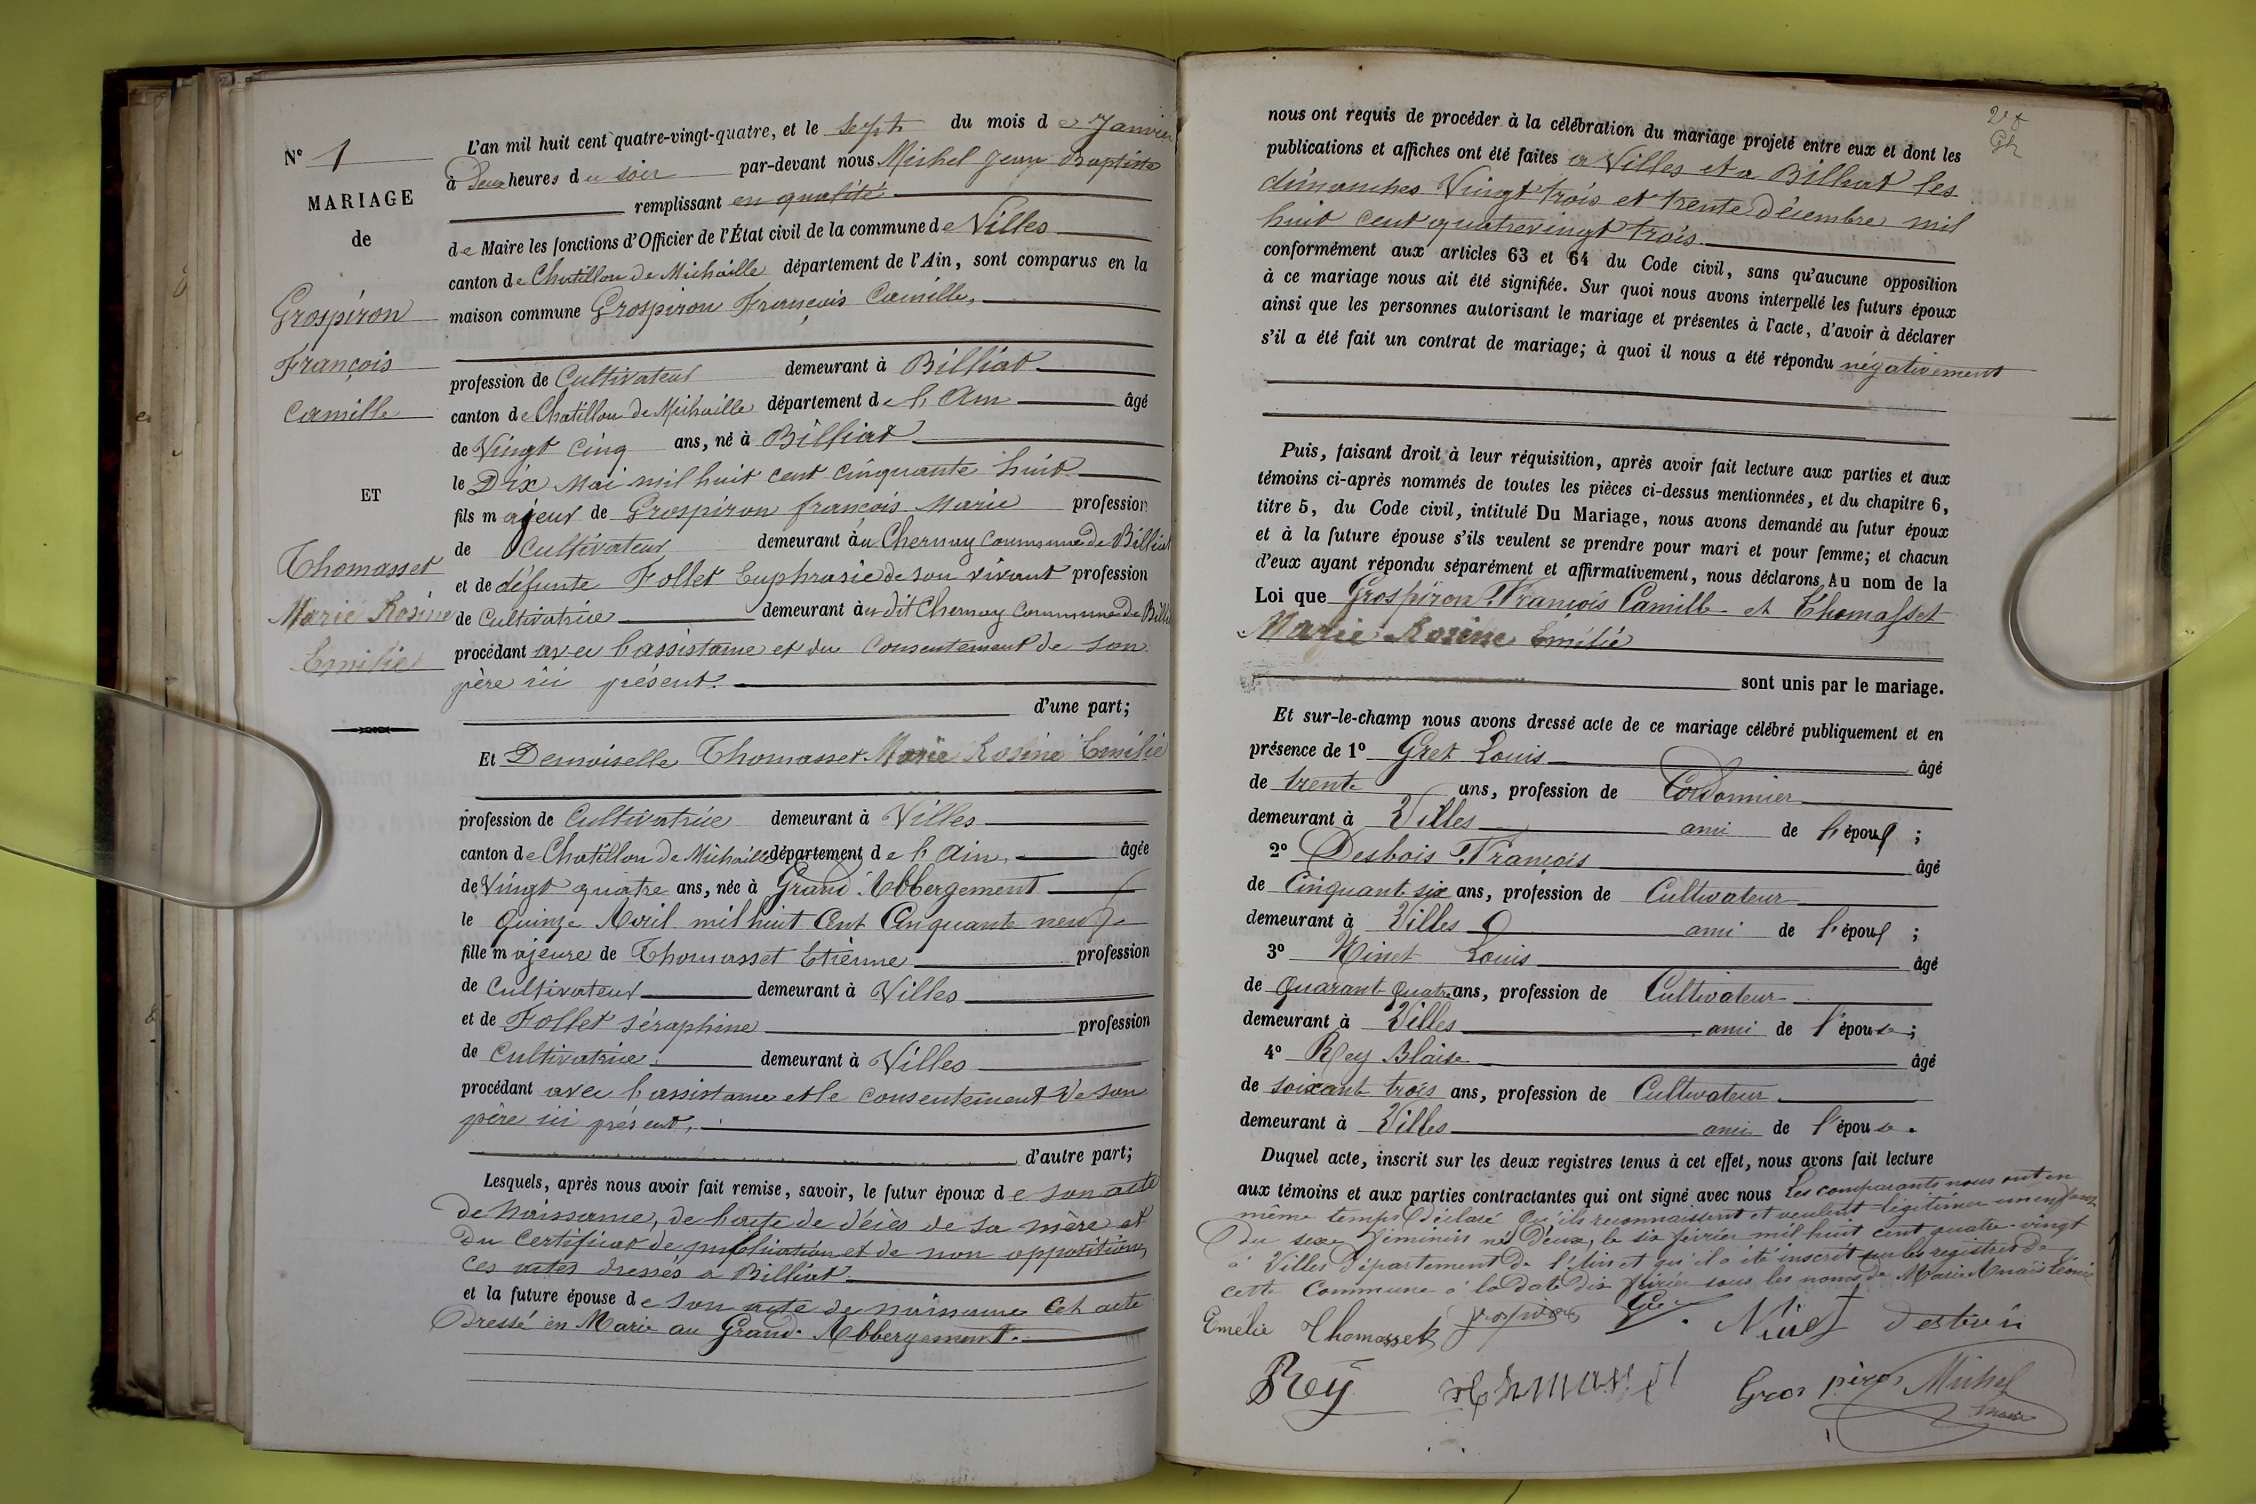 N° 1
MARIAGE
de
Grospiron
François
Camille
ET
Thomasset
Marie Rosine
Emilie
L'an mil huit cent quatre-vingt-quatre, et le sept du mois de Janvier
à Deux heures du soir par-devant nous Michel Jean Baptiste
remplissant en qualité
de Maire les fonctions d'Officier de l'État civil de la commune de Villes
canton de Chatillon de Michaille département de l'Ain, sont comparus en la
maison commune Grospiron François Camille,
profession de Cultivateur demeurant à Billiat
canton de Chatillon de Michaille département de l'Ain âgé
de Vingt cinq ans, né à Billiat
le Dix Mai mil huit cent cinquante huit
fils majeur de Grospiron françois Marie profession
de Cultivateur demeurant à u Chernay commune de Billiat
et de défunte Follet Euphrasie de son vivant profession
de Cultivatrice demeurant à u dit Chernay commune de Billi
procédant avec l'assistance et du consentement de son
père ici présent.
d'une part;
Et Demoiselle Thomasset Marie Rosine Emilie
profession de Cultivatrice demeurant à Villes
canton de Chatillon de Michaille département de l'Ain, âgée
de Vingt quatre ans, née à Grand Abbergement
le quinze Avril mil huit Cent Cinquante neuf
fille majeure de Thomasset Etienne profession
de Cultivateur demeurant à Villes
et de Follet Séraphine profession
de Cultivatrice demeurant à Villes
procédant avec l'assistance et le consentement de son
père ici présent.
d'autre part;
Lesquels, après nous avoir fait remise, savoir, le futur époux de son acte
de Naissance, de l'acte de décès de sa mère et
du certificat de publication et de non opposition,
ces actes dressés à Billiat
et la future épouse de son acte de naissance Cet acte
Dressé en Marie au Grand Abbergement.
nous ont requis de procéder à la célébration du mariage projeté entre eux et dont les
publications et affiches ont été faites à Villes et à Billiat les
dimanches Vingt trois et trente décembre mil
huit cent quatrevingt trois
conformément aux articles 63 et 64 du Code civil, sans qu'aucune opposition
à ce mariage nous ait été signifiée. Sur quoi nous avons interpellé les futurs époux
ainsi que les personnes autorisant le mariage et présentes à l'acte, d'avoir à déclarer
s'il a été fait un contrat de mariage; à quoi il nous a été répondu négativement
Puis, faisant droit à leur réquisition, après avoir fait lecture aux parties et aux
témoins ci-après nommés de toutes les pièces ci-dessus mentionnées, et du chapitre 6,
titre 5, du Code civil, intitulé Du Mariage, nous avons demandé au futur époux
et à la future épouse s'ils veulent se prendre pour mari et pour femme; et chacun
d'eux ayant répondu séparément et affirmativement, nous déclarons Au nom de la
Loi que Grospiron François Camille et Thomasset
Marie Rosine Emilie
sont unis par le mariage.
Et sur-le-champ nous avons dressé acte de ce mariage célébré publiquement et en
présence de 1° Gret Louis âgé
de trente ans, profession de Cordonnier
demeurant à Villes ami de l'époux ;
2° Desbois François âgé
de Cinquant six ans, profession de Cultivateur
demeurant à Villes ami de l'époux ;
3° Ninet Louis âgé
de Quarant quatre ans, profession de Cultivateur
demeurant à Villes ami de l'épouse ;
4° Rey Blaise âgé
de soixant trois ans, profession de Cultivateur
demeurant à Villes ami de l'épouse .
Duquel acte, inscrit sur les deux registres tenus à cet effet, nous avons fait lecture
aux témoins et aux parties contractantes qui ont signé avec nous Les comparants nous ont en
même temps déclaré qu'ils reconnaissent et veulent légitimer un enfant
Du sexe féminin né d'eux, le six février mil huit cent quatre-vingt
à Villes département de l'Ain et qu'il a été inscrit sur les registres de
cette Commune à la date dix février sous les noms de Marie Anaïs Léonie
Emélie Thomasset Grospiron Ninet Desbois
Rey Thomasset Gros piron Michel
maire